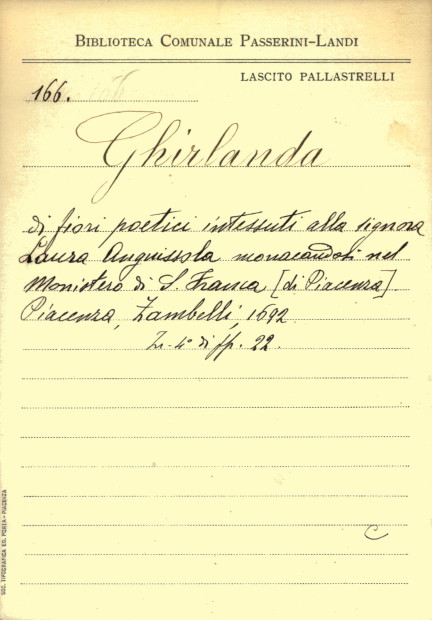 BIBLIOTECA COMUNALE PASSERINI-LANDI
LASCITO PALLASTRELLI
166.
Ghirlanda
di fiori poetici intessuti alla signora
Laura Anguissola monacandosi nel
Monistero di S. Franca [di Piacenza].
Piacenza, Zambelli, 1692.
In-4° di pp. 22.
C
SOC. TIPOGRAFICA ED. PORTA - PIACENZA